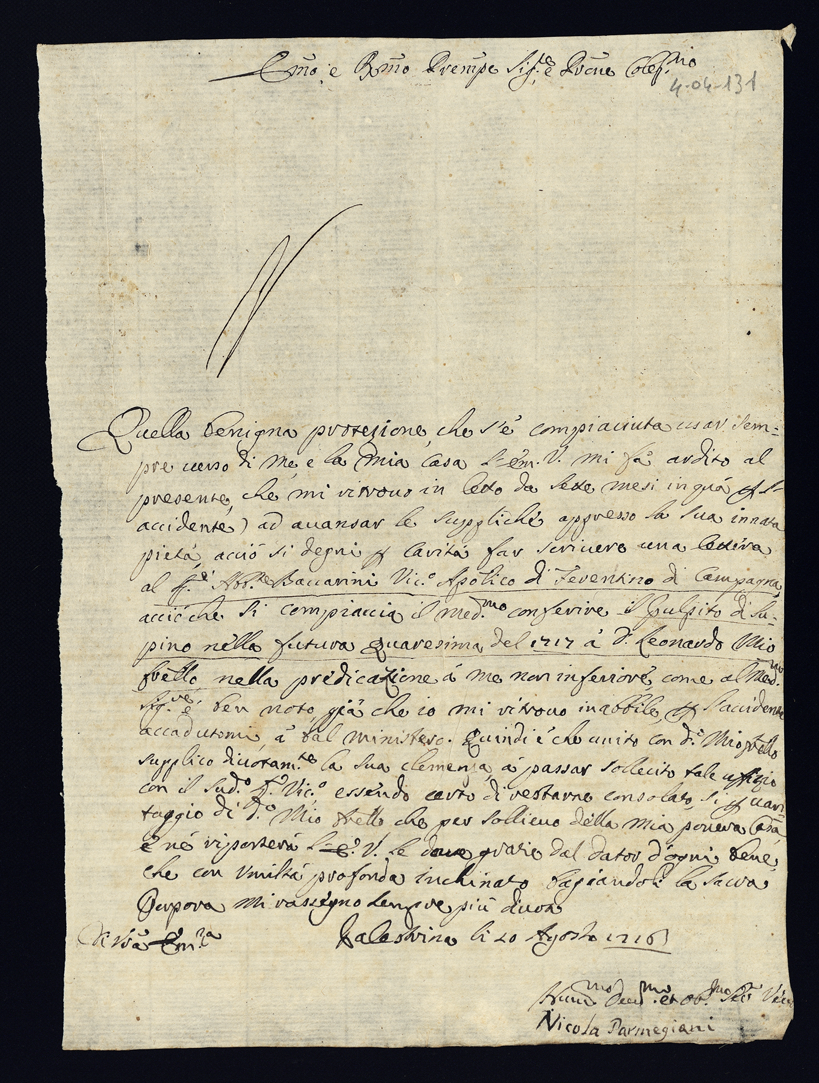 Em̃o, e Rm̃o Prenipe Sig.re e Pr̃one Col.mo
4-04-131
Quella benigna protezione, che s'è compiaciuta usar sem-
pre verso di me, e la mia Casa l'Em. V. mi fà ardito al
presente, che mi ritrovo in letto da sette mesi in quà
accidente) ad avansar le suppliche appresso la sua innata
pietà, acciò si degni carità far scrivere una lettera
al Abb.te Baccarini Vic.o Aplico di Ferentino di Campagna,
acciò che si compiaccia il med.mo conferire il Pulpito di Su-
pino nella futura Quaresima del 1717 à D. Leonardo Mio
frello nella predicazione à me non inferiore, come al Med.mo
Sig.re è ben noto, già che io mi ritrovo inabbile l'accidente
accadutomi, à tal ministero. Quindi è che unito con d.o Mio frello
supplico divotam.te la sua clemenza à passar sollecito tale uffizio
con il sud.o Vic.o essendo certo di restarne consolato, si van-
taggio di d.o Mio frello che per sollievo della mia povera Casa,
e né riporterà l'E. V. le grazie dal dator d'ogni bene,
che con umiltà profonda inchinato bagiandoli la Sacra
Porpora mi rassegno sempre più
Di V'rã Em.za Palestrina li 20 Agosto 1716
Hum.mo Dev.mo et Ob.mo
Nicola Parmegiani